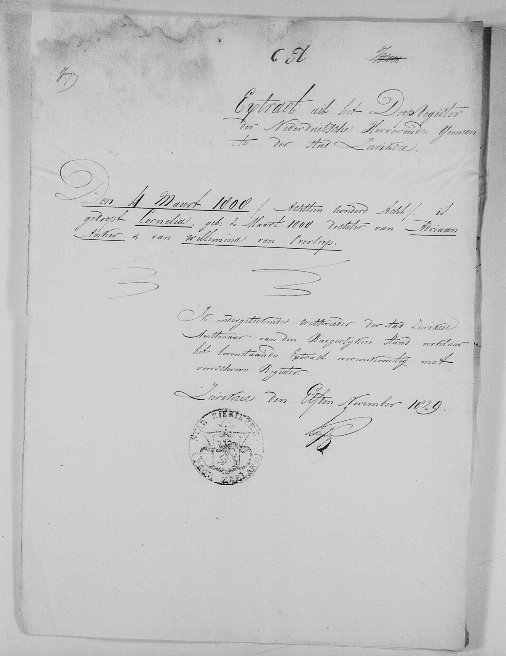 Extract uit het Doopregister
der Nederduitsche Hervormde Gemeen
te der Stad Zierikzee.
Den 4 Maart 1808 /: Achttien honderd Acht :/ is
gedoopt Cornelia, geb. 2 Maart 1808 dochter van Adriaan
Anker & van Willemina van
De ondergeteekende wethouder der stad Zierikzee
Ambtenaar van den Burgerlijken Stand verklaar
het bovenstaande Extract overeenkomstig met
voorschreven Register.
Zierikzee den Elfden November 1829.
STAD ZIERIKZEE
ZEELAND